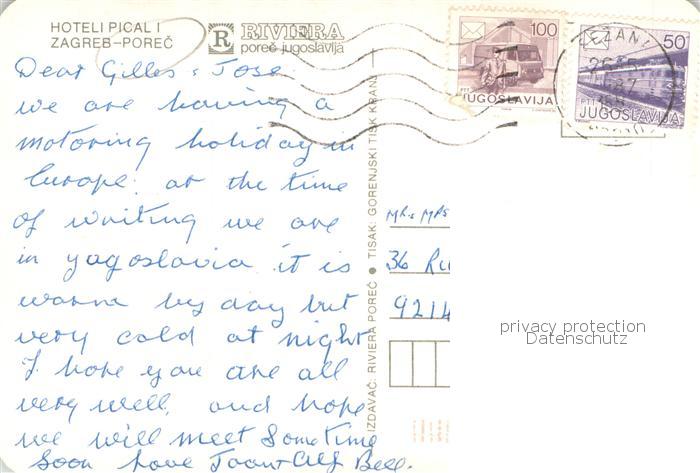 HOTELI PICAL I
ZAGREB-POREČ
R RIVIERA
poreč jugoslavija
Dear Gilles & Jose
we are having a
motoring holiday in
Europe. at the time
of writing we are
in yugoslavia it is
warm by day but
very cold at night
I hope you are all
very well, and hope
we will meet Sometime
Soon love Joan & Alf Bell.
IZDAVAČ: RIVIERA POREČ ● TISAK: GORENJSKI TISK KRANJ
100
PTT
JUGOSLAVIJA
50
PTT
JUGOSLAVIJA
MRs MRS
36 Ru
9214
privacy protection
Datenschutz